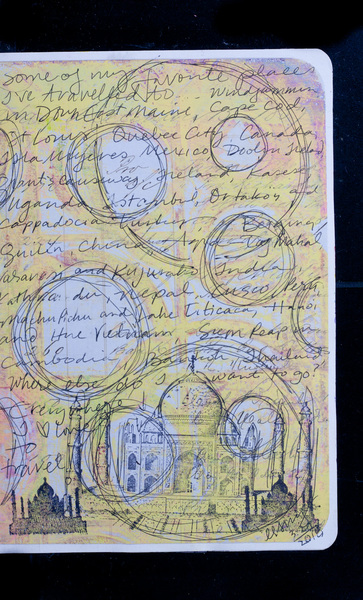 Some of my favorite places
I've travelled to. Windjammin
in Down East Maine, Cape Cod,
St Louis, Quebec City, Canada
Isla Mujeres, Mexico
Giants Causeway, Ireland,
Uganda, Istanbul, Ortakoy and
Cappadocia
Guilin China Agra Taj Mahal
Varanasi and Kujuraho India,
Nepal Cusco Peru
Machu Pichu and Lake Titicaca, Hanoi
and Hue Vietnam, Siem Reap in
Bangkok Thailand
Where else do I want to go?
Everywhere!
I love
To
Travel
2014